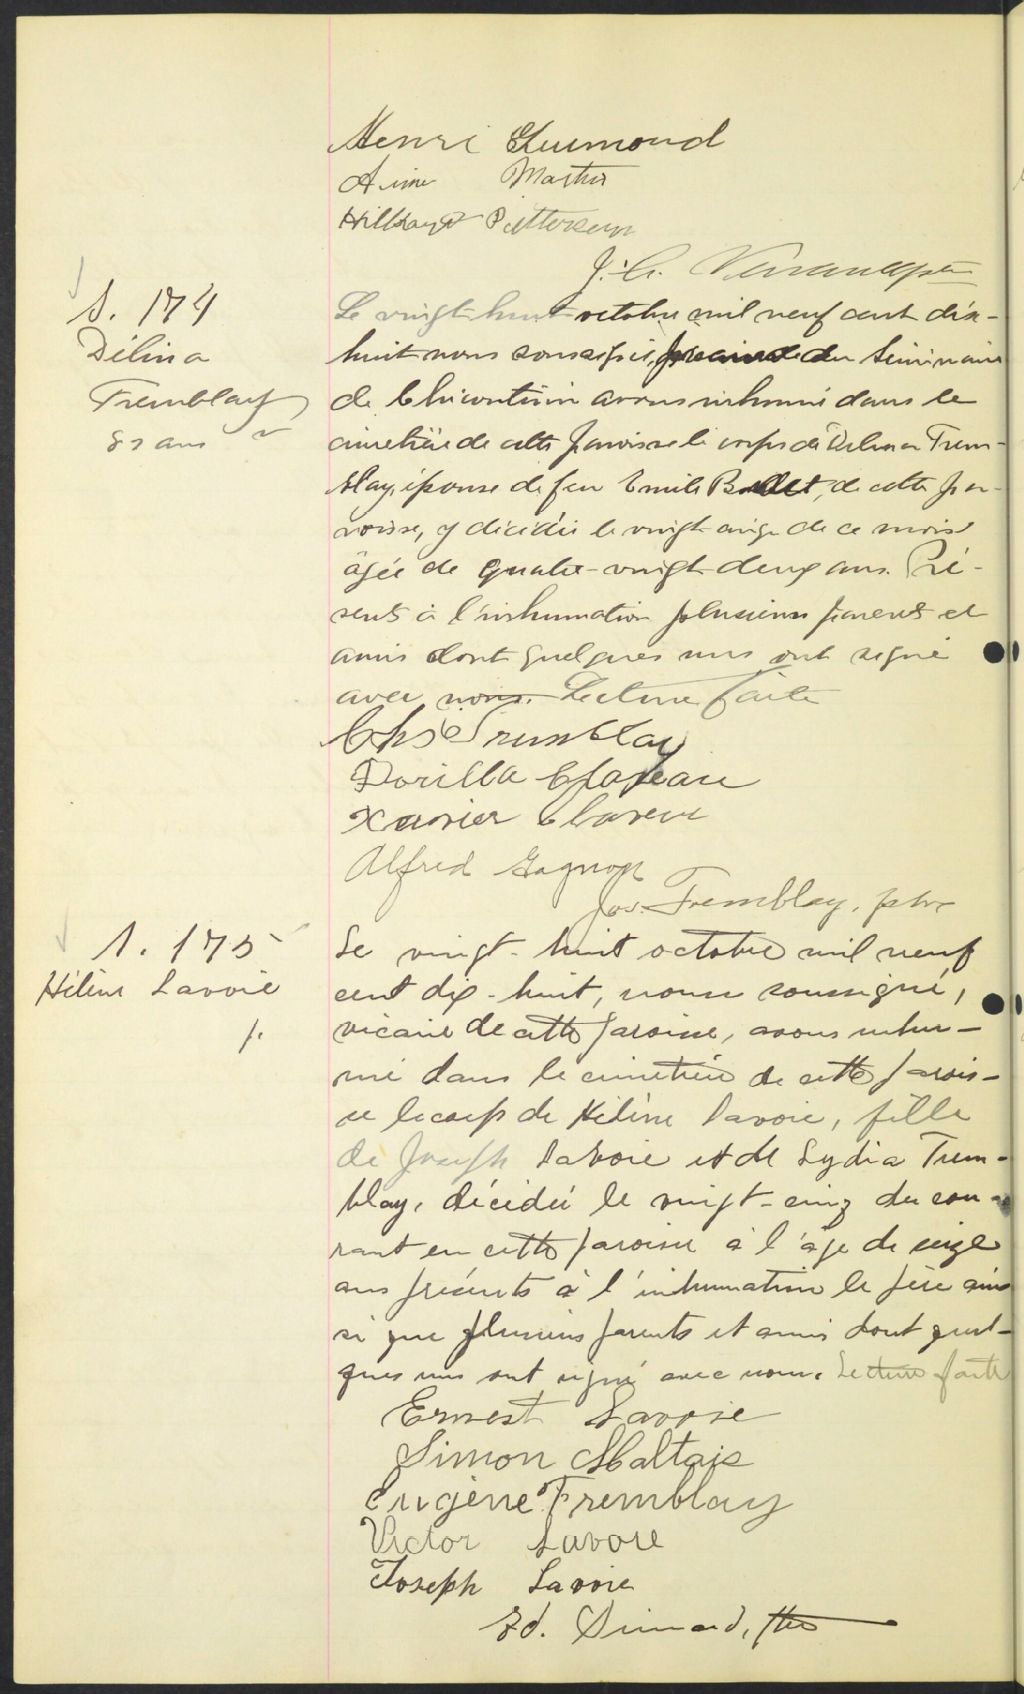 Henri Guimond
Aimé
J. C.
S. 174
Délina
Tremblay
82 ans
Le vingt huit octobre mil neuf cent dix-
huit nous soussigné, du Séminaire
de Chicoutimi avons inhumé dans le
cimetière de cette paroisse le corps de Délina Trem-
blay, épouse de feu Emile de cette pa-
roisse, y décédée le vingt cinq de ce mois
âgée de quatre-vingt deux ans. Pré-
sents à l'inhumation plusieurs parents et
amis dont quelques uns ont signé
avec nous. Lecture faite
Chs Tremblay
Dorilla Claveau
Xavier Claveau
Alfred Gagnon
Jos. Tremblay, ptre
S. 175
Hélène Lavoie
p.
Le vingt-huit octobre mil neuf
cent dix-huit, nous soussigné,
vicaire de cette paroisse, avons inhu-
mé dans le cimetière de cette parois-
se le corps de Hélène Lavoie, fille
de Joseph Lavoie et de Lydia Trem-
blay, décédée le vingt-cinq du cou-
rant en cette paroisse à l'âge de seize
ans présents à l'inhumation le père ain
si que plusieurs parents et amis dont quel-
ques uns ont signé avec nous. Lecture faite
Ernest Lavoie
Simon Maltais
Eugène Tremblay
Victor Lavoie
Joseph Lavoie
Ed. Simard, ptre